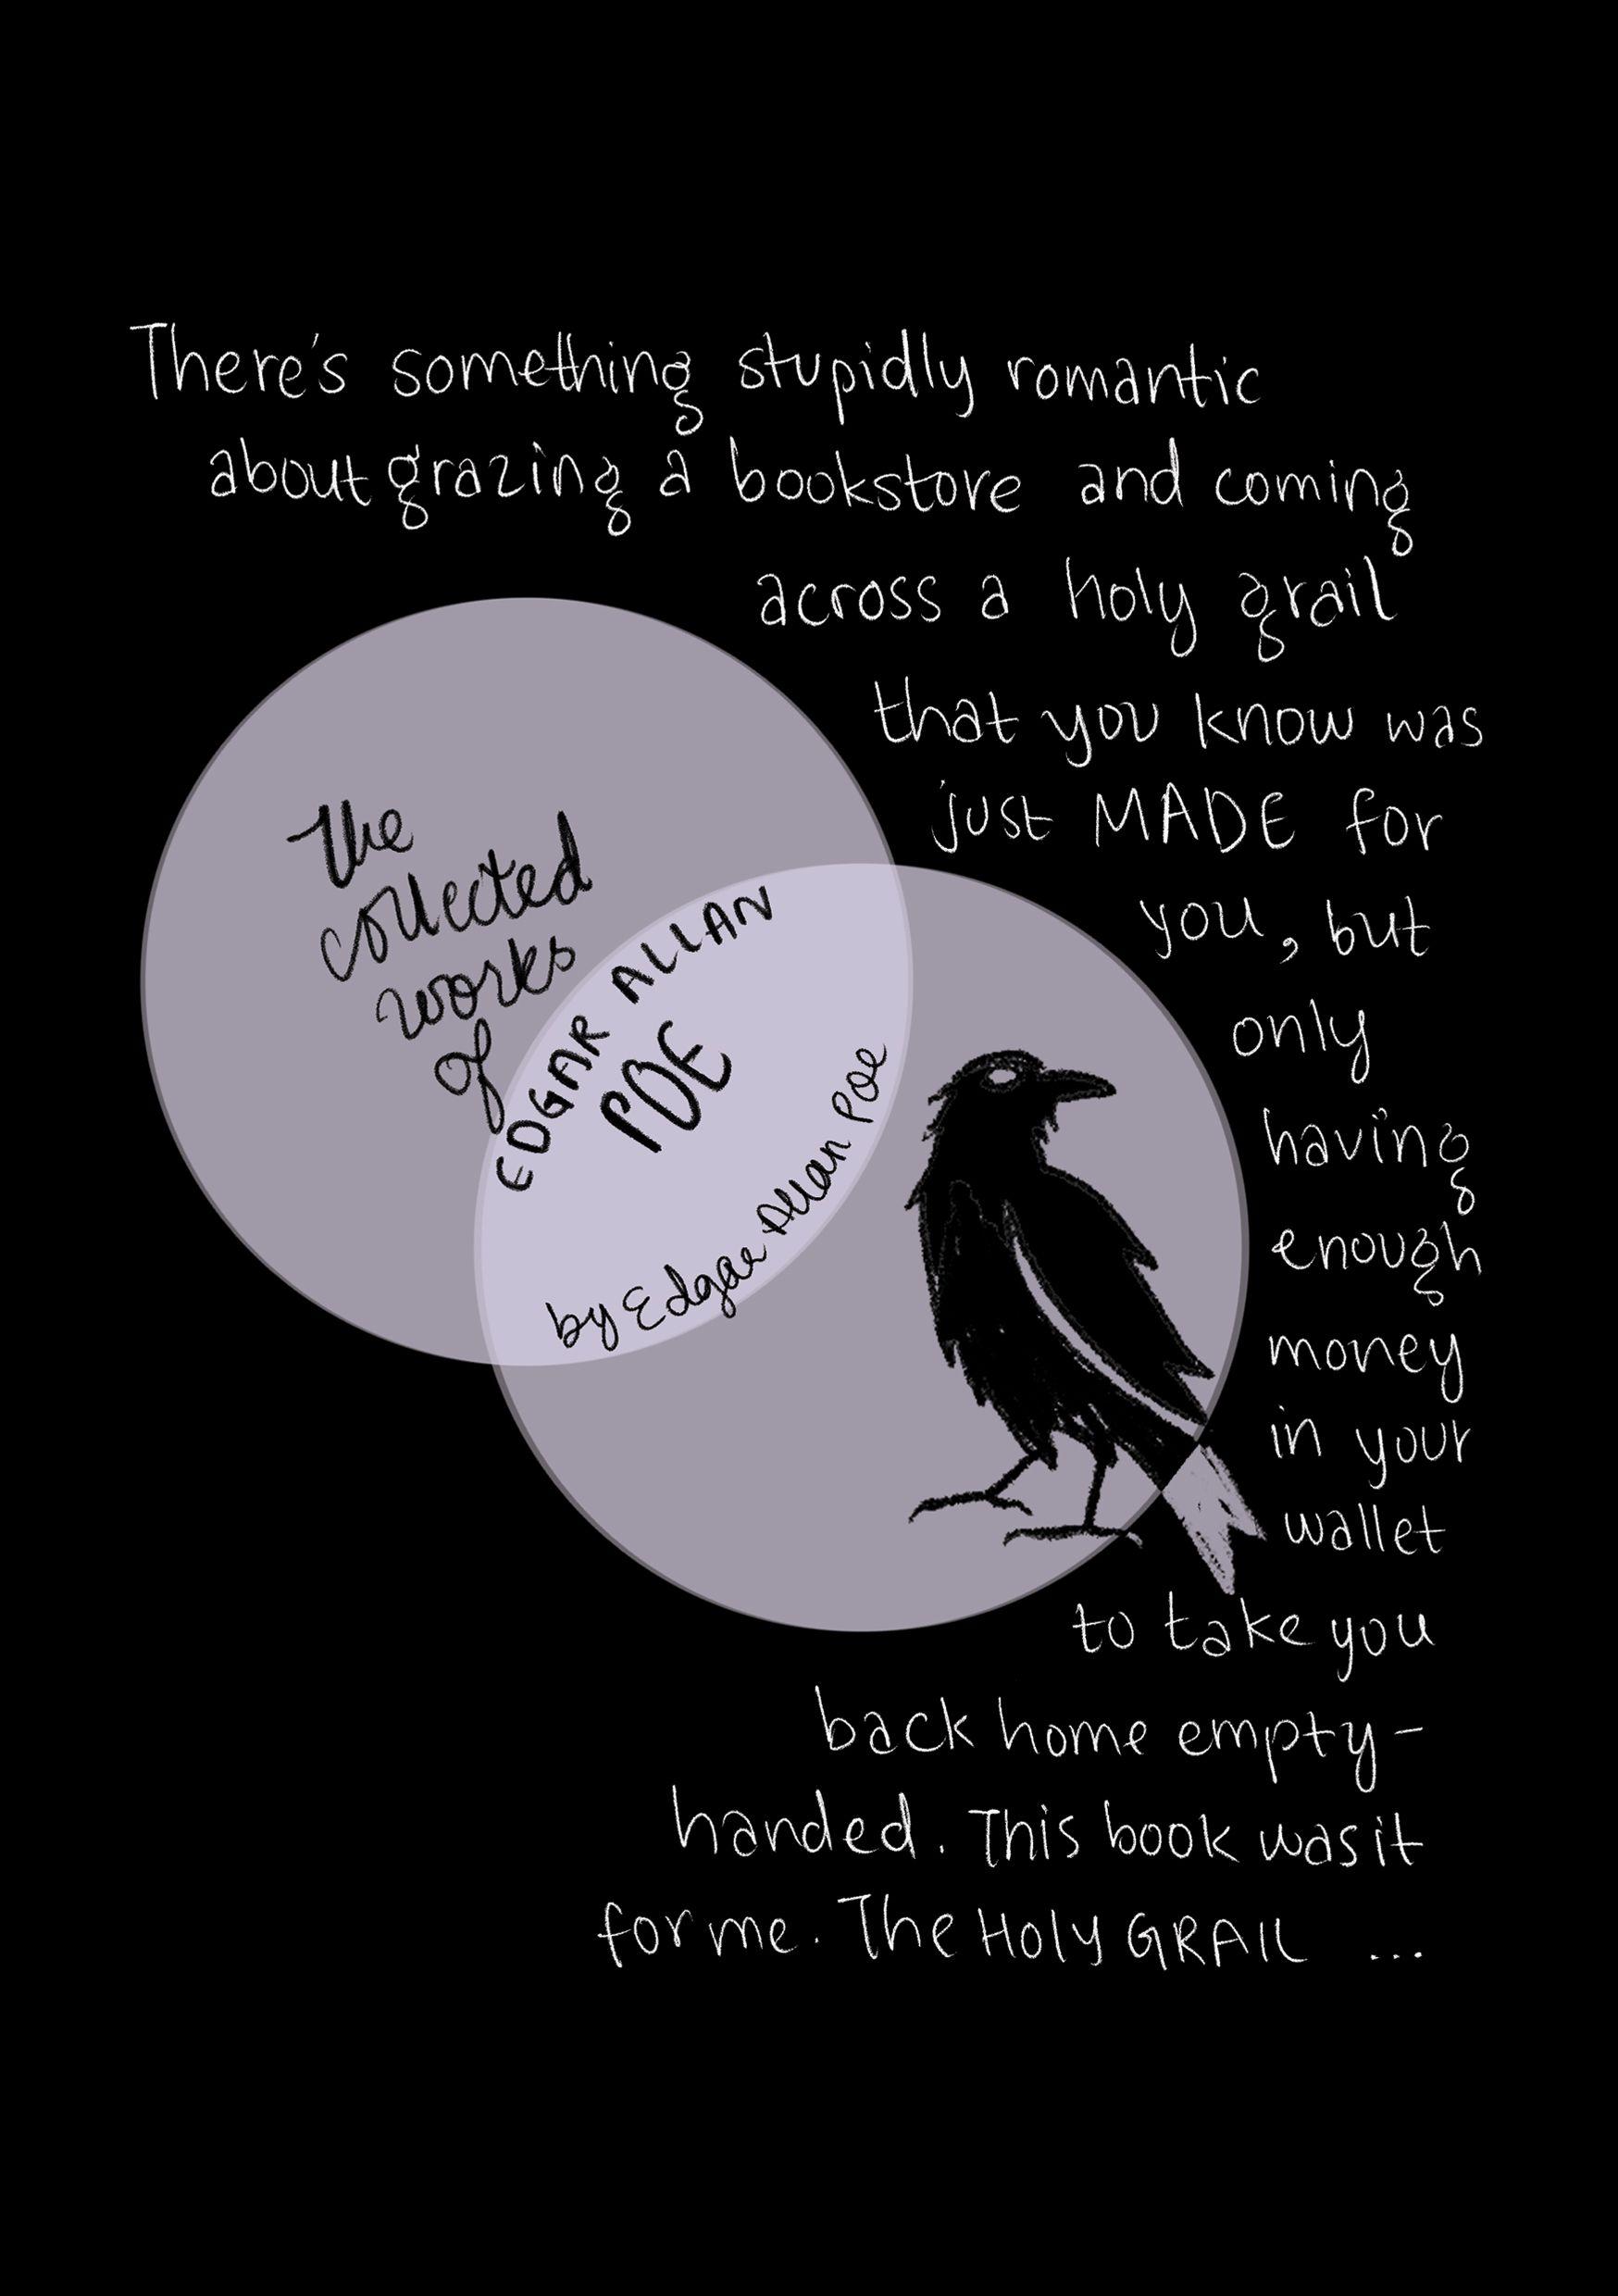 There's something stupidly romantic
about grazing a bookstore and coming
across a holy grail
that you know was
just MADE for
you, but
only
having
enough
money
in your
wallet
to take you
back home empty-
handed. This book was it
for me. The HOLY GRAIL ...
The
collected
works
of
EDGAR ALLAN
POE
by Edgar Allan Poe